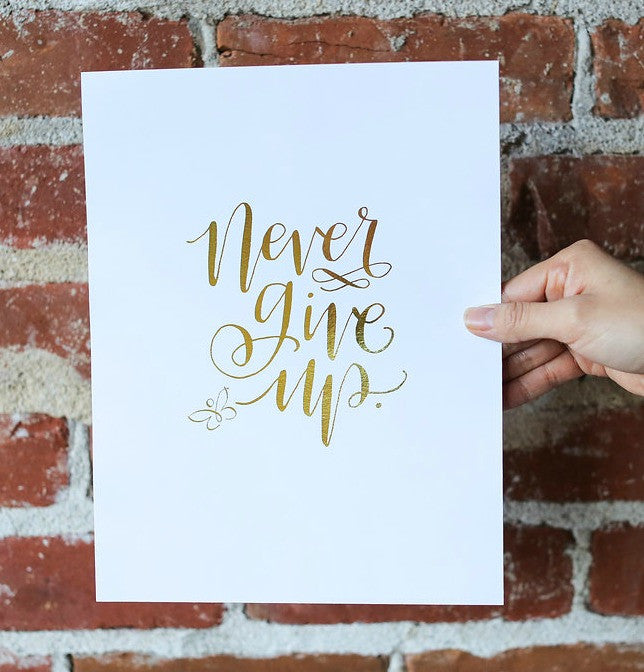 Never
give
up.